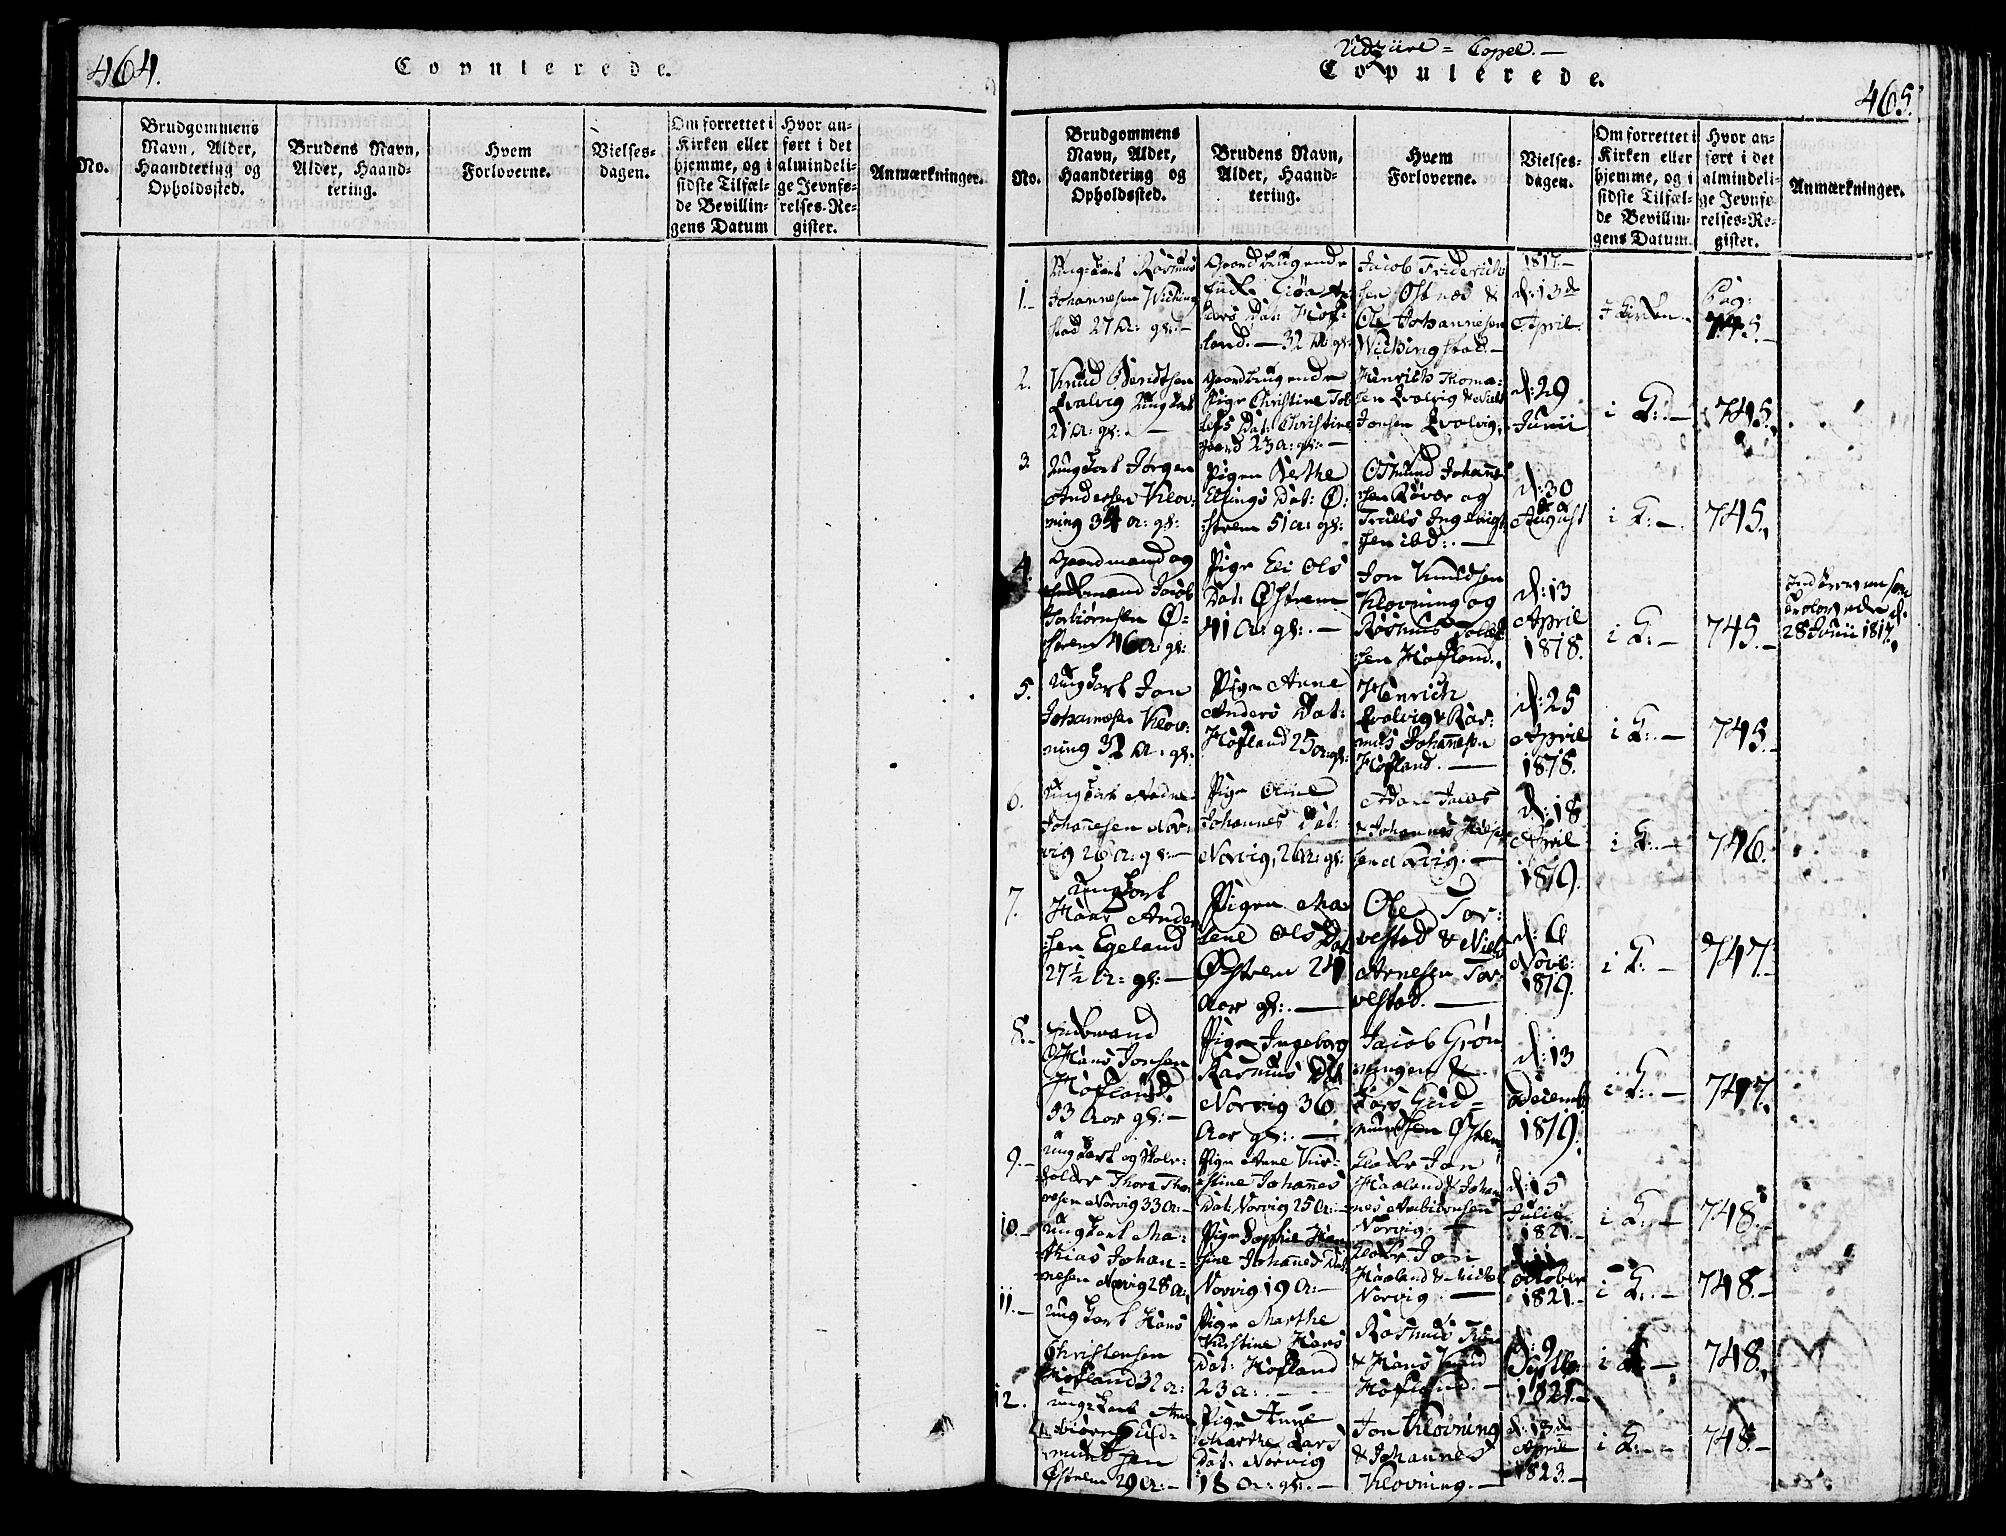 464.
Copulerede.
No.
Brudgommens
Navn, Alder,
Haandtering og
Opholdssted.
Brudens Navn,
Alder, Haand-
tering.
Hvem
Forloverne.
Vielses-
dagen.
Om forrettet i
Kirken eller
hjemme, og i
sidste Tilfæl-
de Bevillin-
gens Datum
Hvor an-
ført i det
almindeli-
ge Jevnfø-
relses-Re-
gister.
Anmærkninger.
Udzüre = Capel. -
Copulerede.
465.
No.
Brudgommens
Navn, Alder,
Haandtering og
Opholdssted.
Brudens Navn,
Alder, Haand-
tering.
Hvem
Forloverne.
Vielses-
dagen.
Om forrettet i
Kirken eller
hjemme, og i
sidste Tilfæl-
de Bevillin-
gens Datum
Hvor an-
ført i det
almindeli-
ge Jevnfø-
relses-Re-
gister.
Anmærkninger.
1.-
Ungkarl Rasmus
Johannesen Wiching
stad 27 Ar: gl: -
land. - 32 Ar: gl:
Jacob Friderich
sen Ostnæs &
Ole Johannesen
Wichingstad. -
1817. -
d: 13de
April.
i Kirken.
Pag:
745. -
2.
Knud Beridtsen
Qvalvig Ungkarl
21 Ar: gl: -
Gaardbrugende
Pige Christine Tol
lefs Dat: Christine
gaard 23 a: gl: -
Henrich Thoma-
sen Qvalvig & Niels
Jonsen Qvalvig.
d: 29
Junii
i K: -
745.
3.
Ungkarl Jørgen
Andersen Klov-
ning 34 a: gl:
Pigen Berthe
Ellings Dat: Ø-
strem 51 a: gl:
Osmund Johanne
sen Røvær og
Truels Ingebrigt
sen ibd: -
d: 30
August
i K: -
745.
4.
Gaardmand og
Enkemand Jacob
Torbiørnsen Ø-
strem 46 a: gl:
Pige Eli Ols
Dat: Østrem
41 a: gl: -
Jon Knudsen
Klovning og
Rasmus Tollef
sen Hofland.
d: 13
April
1818.
i K: -
745. -
28 Junii 1817.
5.
Ungkarl Jon
Johannesen Klov-
ning 32 Ar: gl:
Pigen Anne
Anders Dat:
Hofland 25 a: gl:
Henrich
Qvalvig & Ras-
mus Johannesen
Hofland. -
d: 25
April
1818.
i K: -
745. -
6.
Ungkarl Aadne
Johanesen Nor-
vig 26 a: gl: -
Pige Oline
Johannes Dat:
Norvig, 26 a: gl:
sen Norvig. -
d: 18
April
1819.
i K: -
746.
7.
Ungkarl
Hans Ander
sen Egeland
27½ Ar: gl: -
Pigen Ma-
lene Ols Dat
Østrem 24
Aar gl: -
Ole Tor-
vestad & Niels
Arnesen Tor-
vestad. -
d: 6
Novb:
1819.
i K: -
747. -
8. -
Enkemand
Hans Jonsen
Hofland.
53 Aar gl: -
Pige Ingeborg
Rasmus Dtt
Norvig 36
Aar gl: -
Jacob Grøn
ningen &
Lars Gud-
mundsen Østrem
d: 13
Decemb
1819.
i K: -
747.
9. -
Ungkarl og Skole-
holder Thore Thor
resen Norvig 33 a: -
Pige Anne Kir-
stine Johannes
Dat: Norvig 25 a: -
Klokker Jon
Haaland & Johan
nes Anbiørnsen
Norvig. -
d: 15
Julii
1821. -
i K: -
748. -
10. -
Ungkarl Ma-
thias Johan-
nesen Norvig 28 a:
Pige Sophie Han
sine Johannes Dat:
Norvig 19 a: -
Klokker Jon
Haaland & Michel
Norvig. -
October
1821. -
i K: -
748. -
11. -
Ungkarl Hans
Christensen
Hofland 32 a:
Pige Marthe
Kirstine Hans
Dat: Hofland
23 a: -
& Hans Knud
Hofland. -
d: 9
Septb
1821. -
i K: -
748.
12.
Ungkarl Arn
biørn Gud-
mundsen
Østrem 29 a: -
Pige Anne
Marthe Lars
Dat: Norvig
18 a: gl: -
Jon Klovning
& Johannes
Klovning. -
d: 13de
April
1823. -
i K: -
748. -